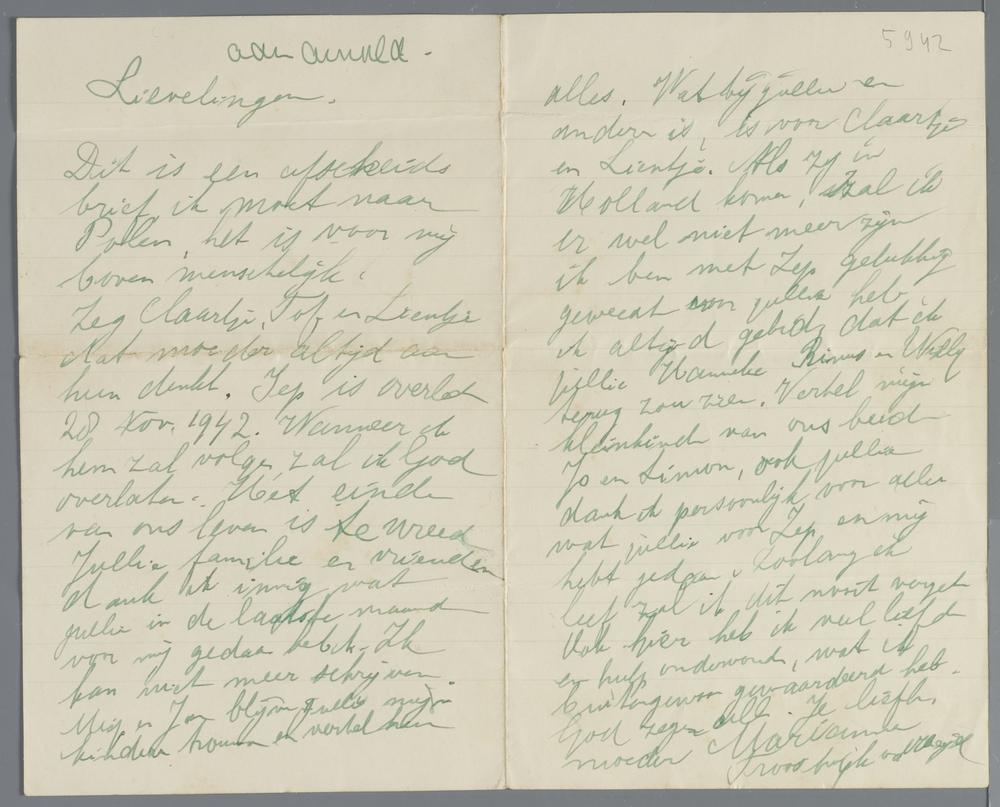 aan Arnold.
Lievelingen.
Dit is een afscheids
brief, ik moet naar
Polen, het is voor mij
boven menschelijk.
Zeg Claartje, Tof en Lientje
dat moeder altijd aan
hun denkt. Jep is overled
28 Nov. 1942. Wanneer ik
hem zal volgen zal ik God
overlaten. Het einde
van ons leven is te wreed
Jullie familie en vrienden
dank ik innig wat
jullie in de laatste maand
voor mij gedaan hebt. Ik
kan niet meer schrijven.
en Jan blijven jullie mijn
kinderen trouw en vertel hun
5942
alles. Wat bij jullie en
andere is, is voor Claartje
en Lientje. Als zij in
Holland komen, zal ik
er wel niet meer zijn
ik ben met Jep gelukkig
geweest voor jullie heb
ik altijd gebid dat ik
jullie Hanneke Rinus en Willy
terug zou zien. Vertel mijn
kleinkind van ons beid
Jo en Simon, ook jullie
dank ik persoonlijk voor alles
wat jullie voor Jep en mij
hebt gedaan. Zoolang ik
leef zal ik dit nooit verget
Ook hier heb ik veel liefd
en hulp ondervond, wat ik
buitengewoon gewaardeerd heb.
God zegen all. Je liefh.
moeder Marianne
Troostwijk